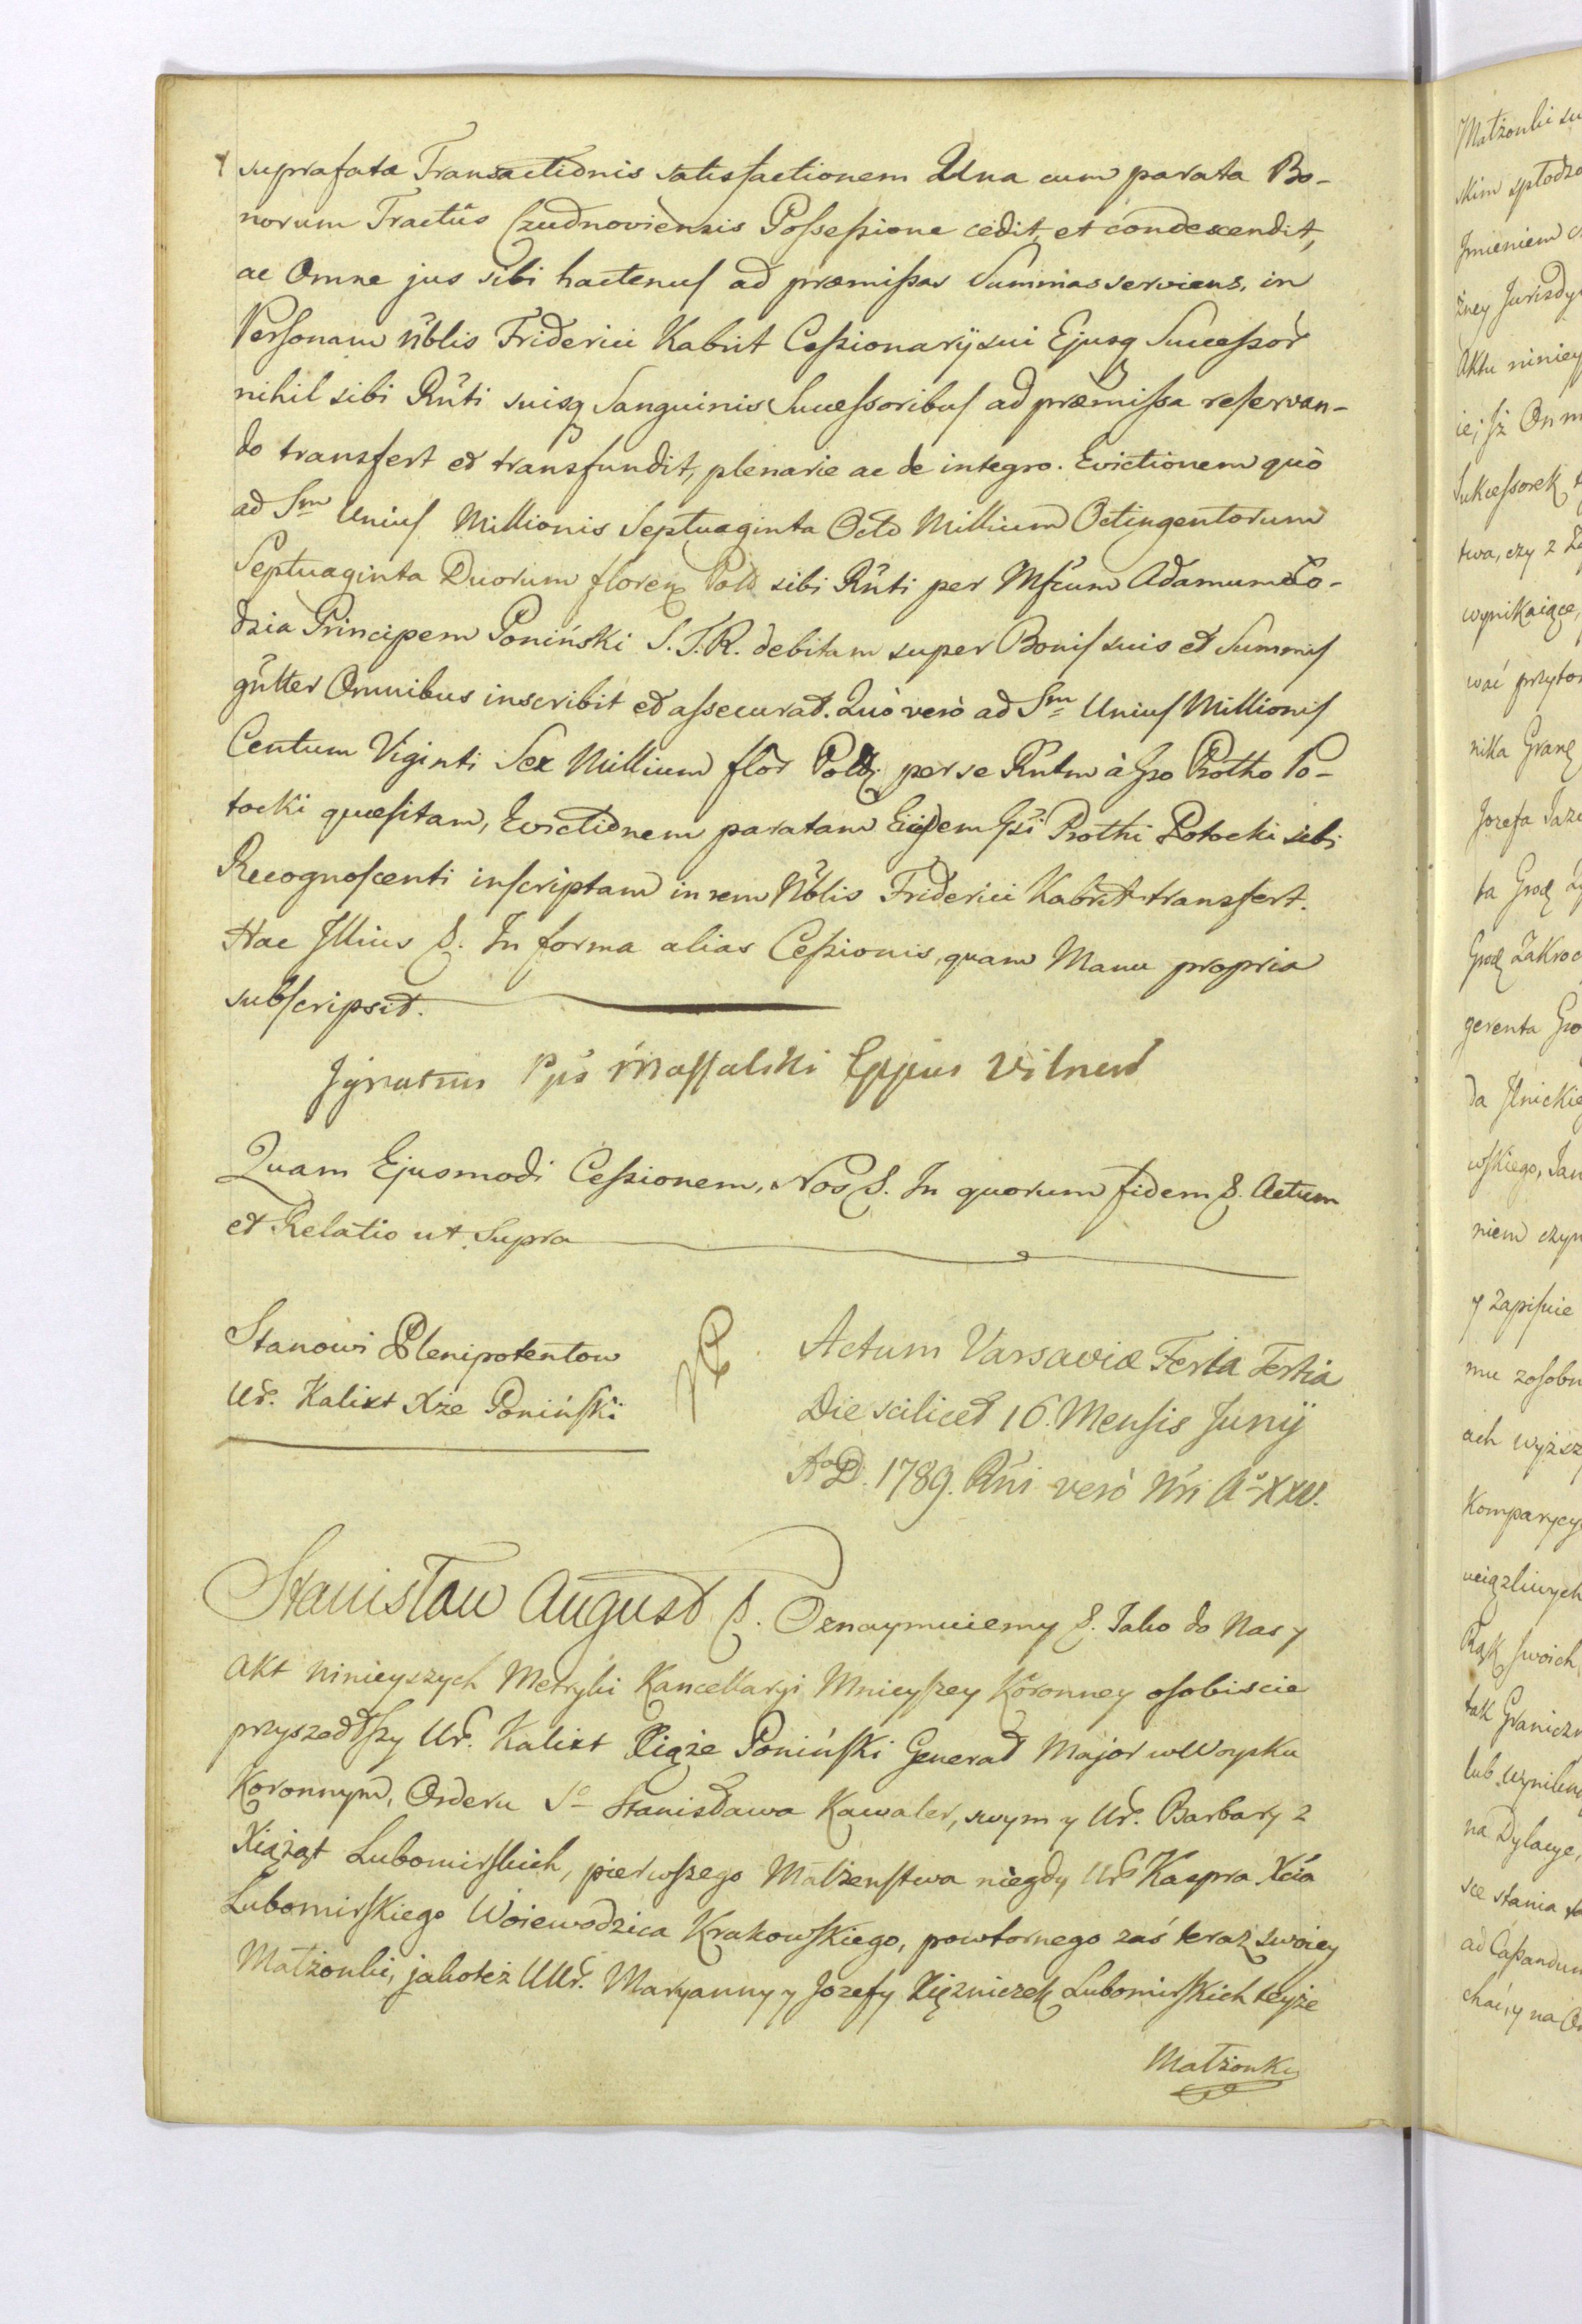 suprafata Transactionis satisfactionem Una cum parata Bo-
norum Tractûs Czudnoviensis Possessione cedit, et condescendit,
ac Omne jus sibi hactenus ad præmissas Summas serviens, in
Personam Nblis Friderici Kabrit Cessionarij sui Ejusq Successor
nihil sibi Rnti suisq Sanguinis Successoribus ad præmissa reservan-
do transfert et transfundit, plenarie ac de integro. Evictionem quò
ad Sm̅ Unius Millionis Septuaginta Octo Millium Octingentorum
Septuaginta Duorum floren Pold sibi Rnti per Mfcum Adamum Ło-
dzia Principem Poniński S.T.R. debitam super Bonis suis et Summis
gntter Omnibus inscribit et assecurat. Quò verò ad Sm̅ Unius Millionis
Centum Viginti Sex Millium flor Pold per se Rntm à Gso Protho Po-
tocki quæsitam, Evictionem paratam Ejusdem Gsi Prothi Potocki sibi
Recognoscenti inscriptam in rem Nblis Friderici Kabrit transfert.
Hac Illius &. In forma alias Cessionis, quam Manu propria
subscripsit.
Ignatius Pps Massalski Eppus Vilnens
Quam Ejusmodi Cessionem, Nos &. In quorum fidem &. Actum
et Relatio ut Supra
Stanowi Plenipotentow
Ur. Kalixt Xże Poniński
Actum Varsaviæ Feria Tertia
Die scilicet 16. Mensis Junij
AoD. 1789. Rni verò Nri Ao XXV.
Stanisław August &. Oznaymuiemy &. Jako do Nas y
Akt ninieyszych Metryki Kancellaryi Mnieyszey Koronney osobiscie
przyszedłszy Ur. Kalixt Xiąże Poniński Generał Major w Woysku
Koronnym, Orderu So Stanisława Kawaler, swym y Ur. Barbary z
Xiążąt Lubomirskich, pierwszego Małżenstwa niegdy Uro Kacpra Xcia
Lubomirskiego Woiewodzica Krakowskiego, powtornego zaś teraz swoiey
Małżonki, jakoteż UUr. Maryanny y Jozefy Xiężniczek Lubomirskich teyże
Małżonki